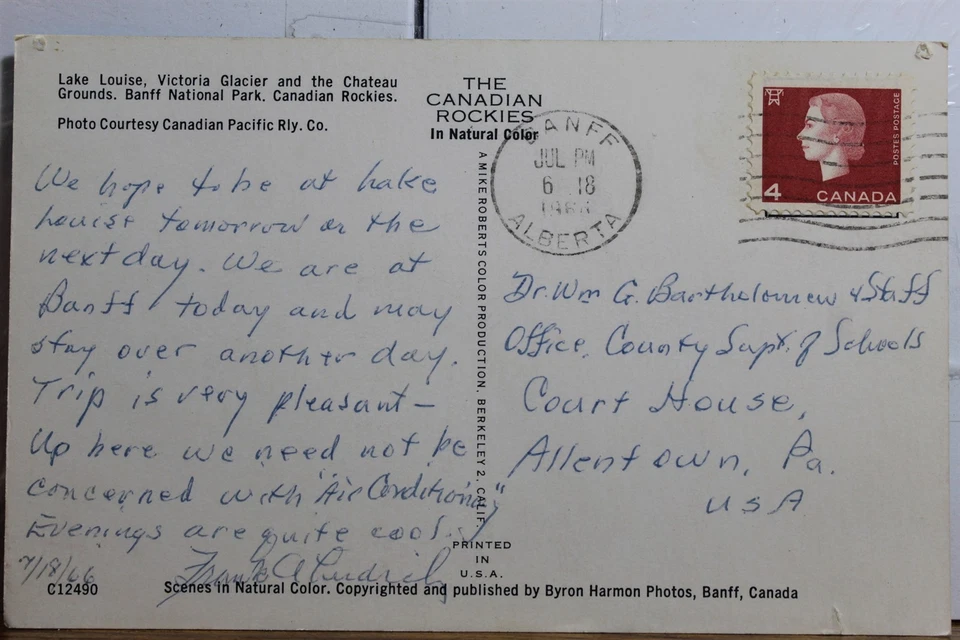 Lake Louise, Victoria Glacier and the Chateau
Grounds. Banff National Park. Canadian Rockies.
Photo Courtesy Canadian Pacific Rly. Co.
THE
CANADIAN
ROCKIES
In Natural Color
A MIKE ROBERTS COLOR PRODUCTION. BERKELEY 2, CALIF.
BANFF
JUL PM
6 18
ALBERTA
POSTES POSTAGE
4 CANADA
We hope to be at Lake
Louise tomorrow or the
next day. We are at
Banff today and may
stay over another day.
Trip is very pleasant –
Up here we need not be
concerned with "Air Conditioning"
Evenings are quite cool.
7/18/66
Frank A
Dr. Wm G. Bartholomew & Staff
Office, County Supt. of Schools
Court House,
Allentown, Pa.
USA
PRINTED
IN
U.S.A.
C12490
Scenes in Natural Color. Copyrighted and published by Byron Harmon Photos, Banff, Canada